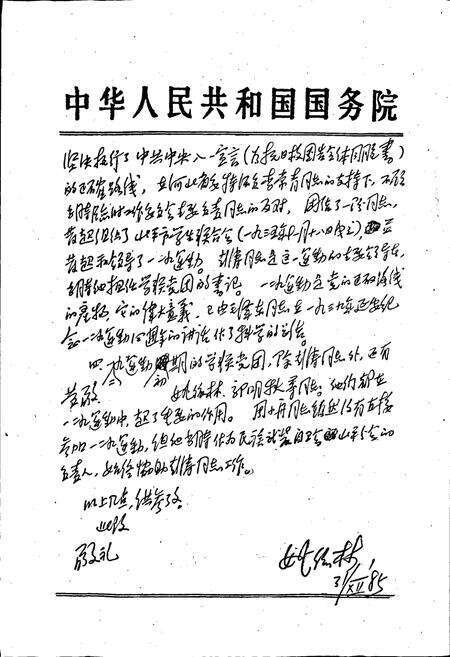 中华人民共和国国务院
坚决执行了中共中央八一宣言(为抗日救国告全体同胞书)
的正确路线,在河北省委特派员李常青同志的支持下,不顾
当时临时市委主要负责同志的反对,团结了一些同志,
发起组织了北平市学生联合会(一九三五年十一月十八日成立),并
发起和领导了一二九运动。彭涛同志是这一运动的主要领导者,
当时他担任学联党团的书记。一二九运动是党的正确路线
的产物,它的伟大意义,已由毛泽东同志在一九三九年延安纪
念一二九运动四周年的讲话作了科学的论述。
四、一二九运动初期的学联党团,除彭涛同志外,还有
黄敬、姚依林、郭明秋等同志。他们都在
一二九运动中,起了重要的作用。周小舟同志虽然没有直接
参加一二九运动,但他当时作为民族武装自卫会北平分会的
负责人,始终协助彭涛同志工作。
以上几点,供参考。
此致
敬礼
姚依林
31/XII 85